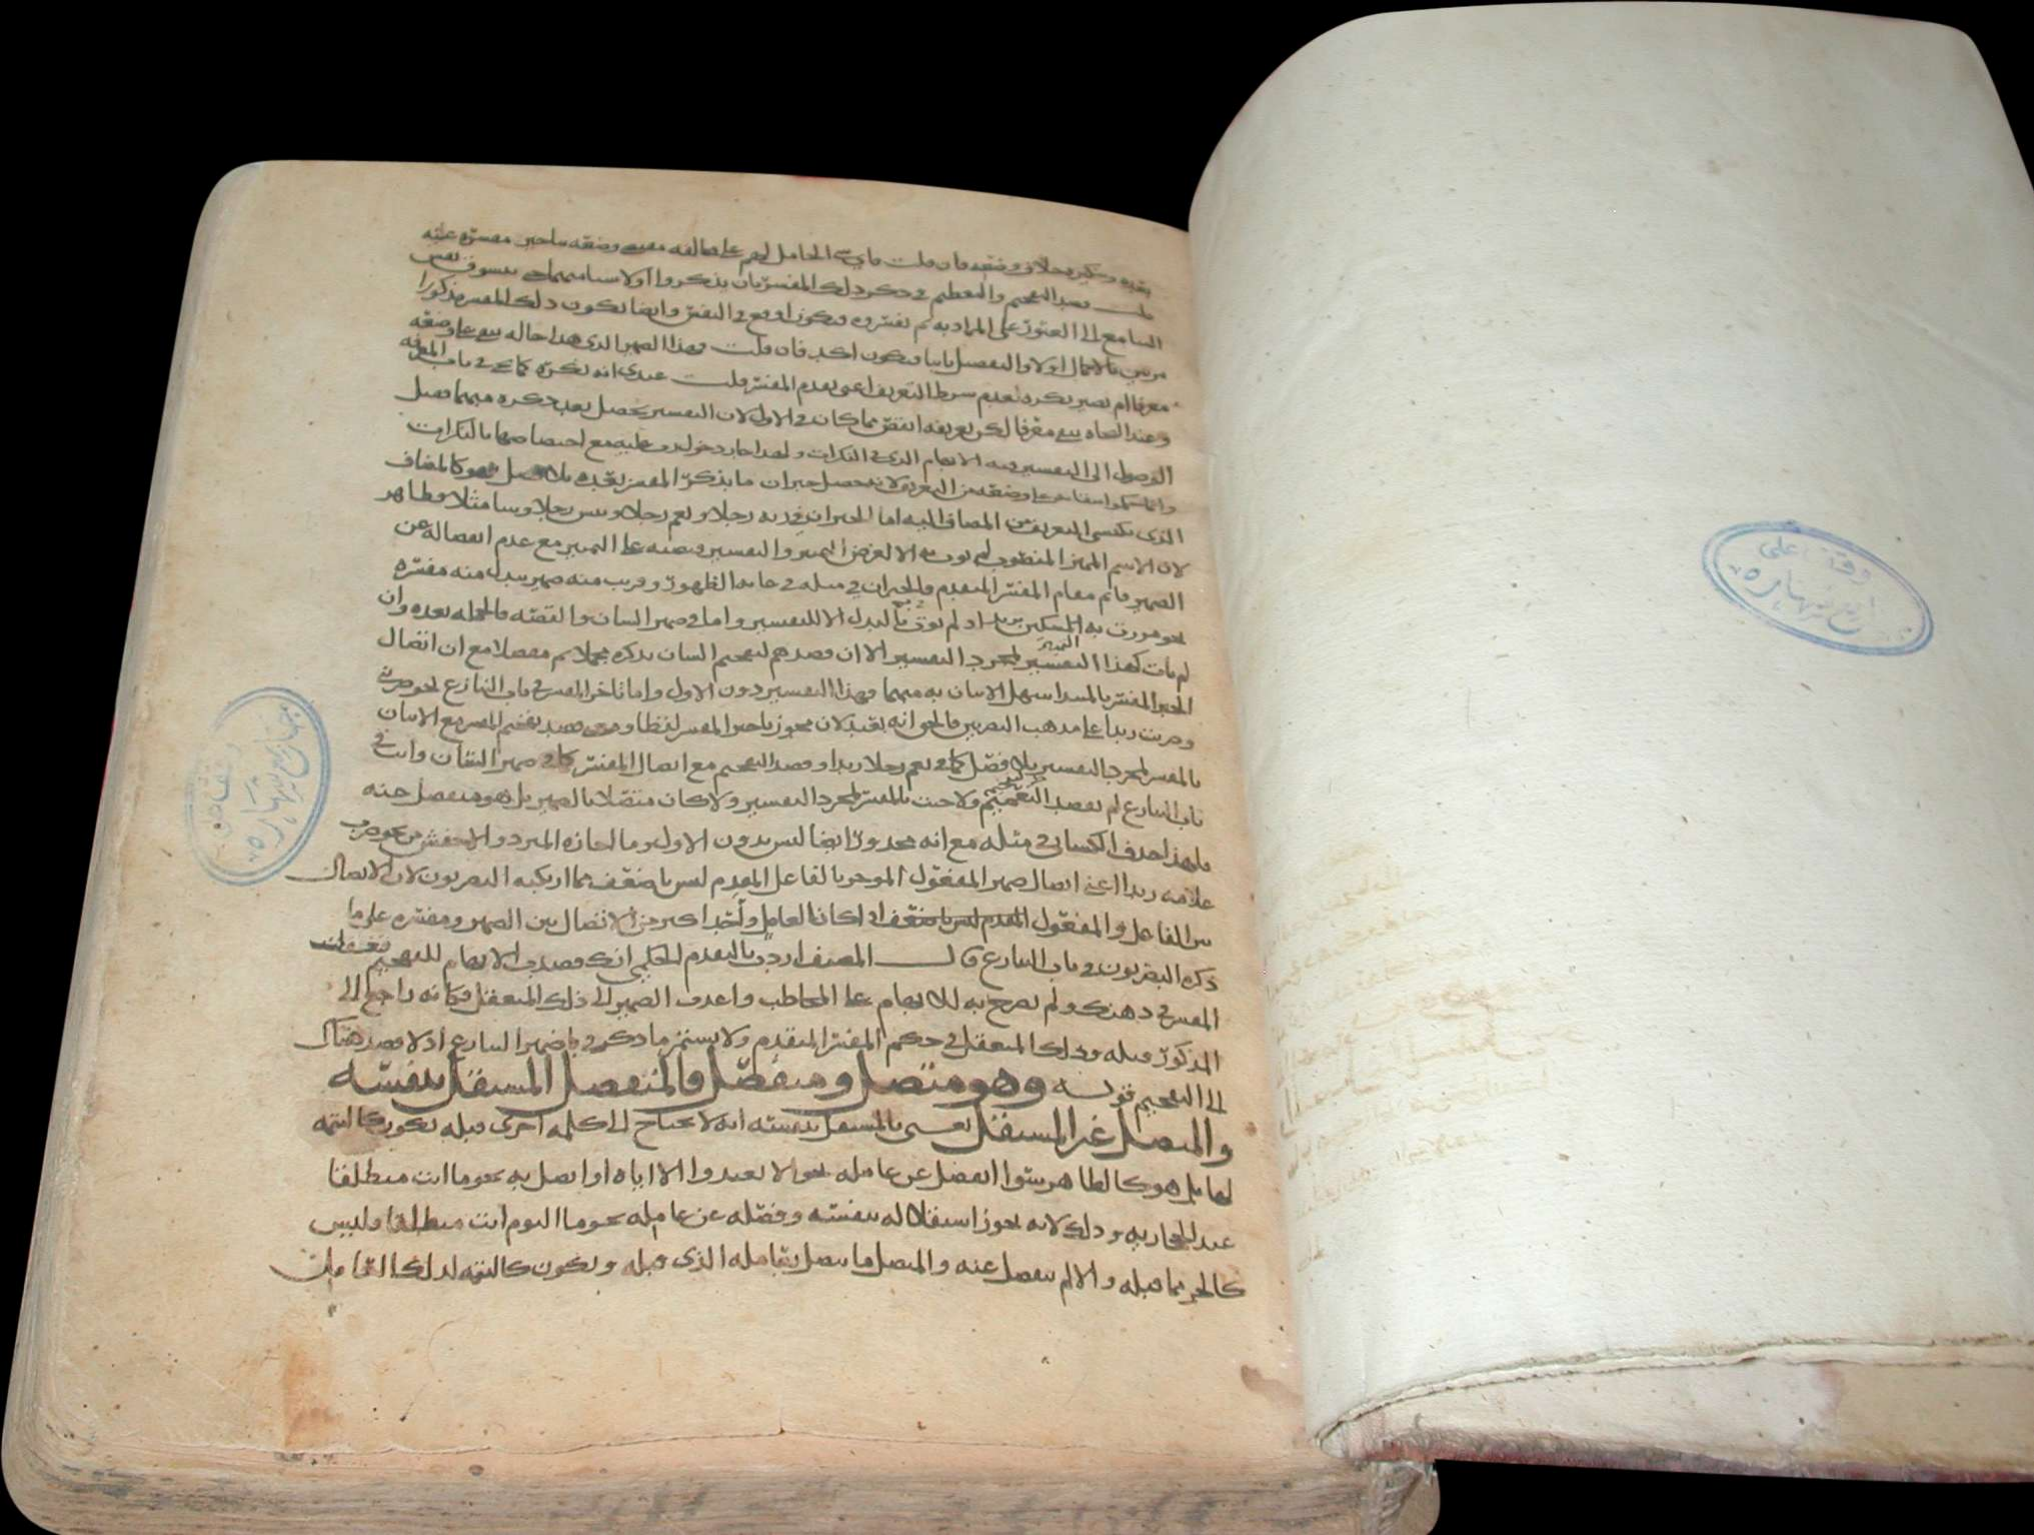 بعده وتنكيره خلاف وضعه فان قلت فاي شيء الحامل لهم على مخالفة مقتضى وضعه بتاخير مفسره عنه
قلت قصد التفخيم والتعظيم في ذكر ذلك المفسر بان يذكروا اولا شيا مبهما حتى يتشوف نفس
السامع الى العثور على المراد به ثم يفسروه فيكون اوقع في النفس وايضا يكون ذلك المفسر مذكورا
مرتين بالاجمال اولا والتفصيل ثانيا فيكون اكد فان قلت فهذا الضمير الذي هذا حاله يبقى على وضعه
معرفا ام يصير نكرة لعدم شرط التعريف اعني تقدم المفسر قلت عندي انه نكرة كما يجي في باب المعرفة
وعند النحاة يبقى معرفا لكن تعريفه انقص مما كان في الاول لان التفسير يحصل بعد ذكره مبهما فقبل
الوصول الى التفسير فيه الابهام الذي في النكرات ولهذا جاز دخول رب عليه مع اختصاصها بالنكرات
وانما حكموا ببقائه على وضعه من التعريف لانه حصل جبران ما بذكر المفسر بعده بلا فصل فهو كالمضاف
الذي يكتسي التعريف من المضاف اليه اما الجبران في ربه رجلا ونعم رجلا وبئس رجلا وسا مثلا فظاهر
لان الاسم المميز المنصوب لم يوت به الا لغرض التمييز والتفسير فنصبه على التمييز مع عدم انفصاله عن
الضمير قائم مقام المفسر المتقدم والجبران في مثله في غاية الظهور وقريب منه ضمير يبدل منه مفسره
نحو مررت به المسكين زيد اذ لم يوت بالبدل الا للتفسير واما في ضمير الشان والقصة فالجملة بعده وان
لم يات كهذا التفسير لمجرد التفسير الا ان قصدهم لتفخيم الشان بذكره مجملا ثم مفصلا مع ان اتصال
الخبر المفسر بالمبتدا سهل الاتيان به مبهما فهذا التفسير دون الاول واما تاخر المفسر في باب التنازع نحو ضربني
وضربت زيدا على مذهب البصريين فالحق انه بعيد لان مجوز تاخير المفسر لفظا ومعنى قصد تفخيم المفسر مع الاتيان
بالمفسر لمجرد التفسير بلا فصل كما في نعم رجلا زيد او قصد التفخيم مع اتصال المفسر كما في ضمير الشان وانت في
باب التنازع لم تقصد التفخيم ولا جئت بالمفسر لمجرد التفسير ولا كان متصلا بالضمير بل هو منفصل عنه
فلهذا حذف الكسائي مثله مع انه محذور ايضا ليس بدون الاول وما اجازه المبرد والاخفش من نحو ضرب
غلامه زيدا اعني اتصال ضمير المفعول الموخر بالفاعل المقدم ليس باضعف مما ارتكبه البصريون لان الاتصال
بين الفاعل والمفعول اذا كان العامل واحدا اكثر من الاتصال بين الضمير ومفسره على ما
ذكره البصريون في باب التنازع قال المصنف اردت بالتقدم الحكمي انك قصدت الابهام للتفخيم فتعقلت
المفسر في ذهنك ولم تصرح به للابهام على المخاطب واعدت الضمير الى ذلك المتعقل فكانه راجع الى
المذكور قبله وذلك المتعقل في حكم المفسر المتقدم ولا يستمر ما ذكر في ضمير التنازع اذ لا قصد هناك
الى التفخيم قوله وهو متصل ومنفصل فالمنفصل المستقل بنفسه
والمتصل غير المستقل يعني بالمستقل بنفسه انه لا يحتاج الى كلمة اخرى قبله يكون كالتتمة
لها بل هو كالظاهر سوا انفصل عن عامله نحو لا تعبدوا الا اياه او اتصل به نحو ما انت منطلقا
عند الحجازية وذلك لانه يجوز استقلاله بنفسه وفصله عن عامله نحو ما اليوم انت منطلقا وليس
كالجز مما قبله والا لم ينفصل عنه والمتصل ما يتصل بعامله الذي قبله ويكون كالتتمة لذلك العامل